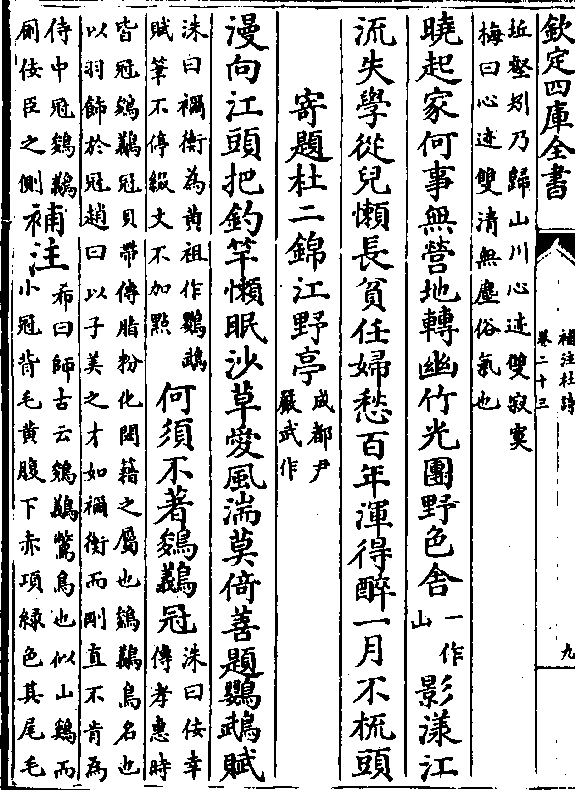 欽定四庫全書
補注杜詩
卷二十三
九
坵壑矧乃歸山川心迹雙寂寞
梅曰心迹雙清無塵俗氣也
曉起家何事無營地轉幽竹光團野色舍一作山影漾江
流失學從兒懶長貧任婦愁百年渾得醉一月不梳頭
寄題杜二錦江野亭成都尹嚴武作
漫向江頭把釣竿懶眠沙草愛風湍莫倚善題鸚鵡賦
洙曰禰衡為黄祖作鸚鵡賦筆不停綴文不加點何須不著鵕鸃冠洙曰佞幸傳孝惠時
皆冠鵕鸃冠貝帶傅脂粉化閎籍之屬也鵕鸃鳥名也
以羽飾於冠趙曰以子美之才如禰衡而剛直不肯為
侍中冠鵕鸃厠佞臣之側補注希曰師古云鵕鸃鷩鳥也似山鷄而小冠背毛黄腹下赤項緑色其尾毛